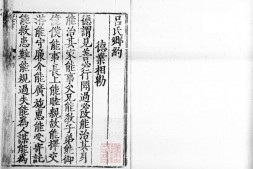 呂氏鄉約
德業相勸
德謂見善必行聞過必改能治其身
能治其家能事父兄能教子弟能御
僮僕能事長上能睦親故能擇交
遊能守廉介能廣施惠能受寄託
能救患難能規過失能為人謀能為